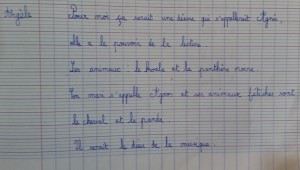 Angèle Pour moi ça serait une déesse qui s'appellerait Agné.
elle a le pouvoir de la lecture.
Les animaux : le koala et la panthère noire.
Son mari s'appelle Apon et ses animaux fétiches sont
le cheval et le panda.
Il serait le dieu de la musique.